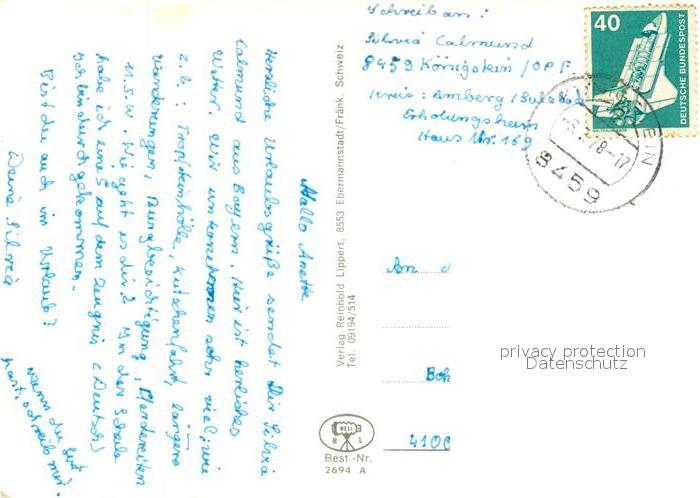 Hallo Anette
Herzliche Urlaubsgrüße sendet Dir Silvia
Calmund aus Bayern. Hier ist herrliches
Wetter. Wir unternehmen sehr viel: wie
z.b.: Tropfsteinhölle, Kutschenfahrt, längere
Wanderungen, Burgbesichtigung, Pferdereiten
u.s.w. Wie geht es dir? In der Schule
habe ich eine 5 auf dem Zeugnis (Deutsch)
Ich bin durchgekommen.
Bist du auch im Urlaub?
Deine Silvia
wenn du Zeit
hast, schreib mir.
Verlag Reinhold Lippert, 8553 Ebermannstadt/Fränk. Schweiz
Tel. 09194/514
RELI
R L
Best-Nr.
2694 A
Schreib an:
Silvia Calmund
8459 Königstein / OPF.
Kreis: Amberg / Sulzba
Erholungsheim
Haus Nr. 169
40
DEUTSCHE BUNDESPOST
78-17
8459
An
Boh
4100
privacy protection
Datenschutz